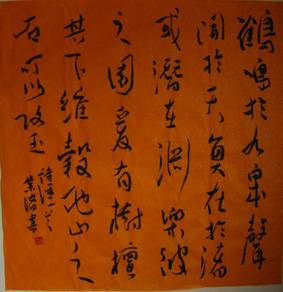 鶴鳴於九皋聲
聞於天魚在於渚
或潛在淵樂彼
之園爰有樹檀
其下維穀他山之
石可以攻玉
詩經一首